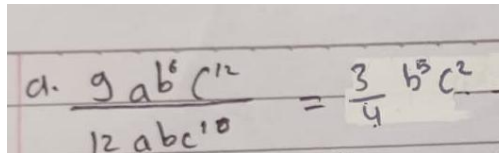 d. 9ab⁶c¹² / 12abc¹⁰ = 3/4 b⁵c²